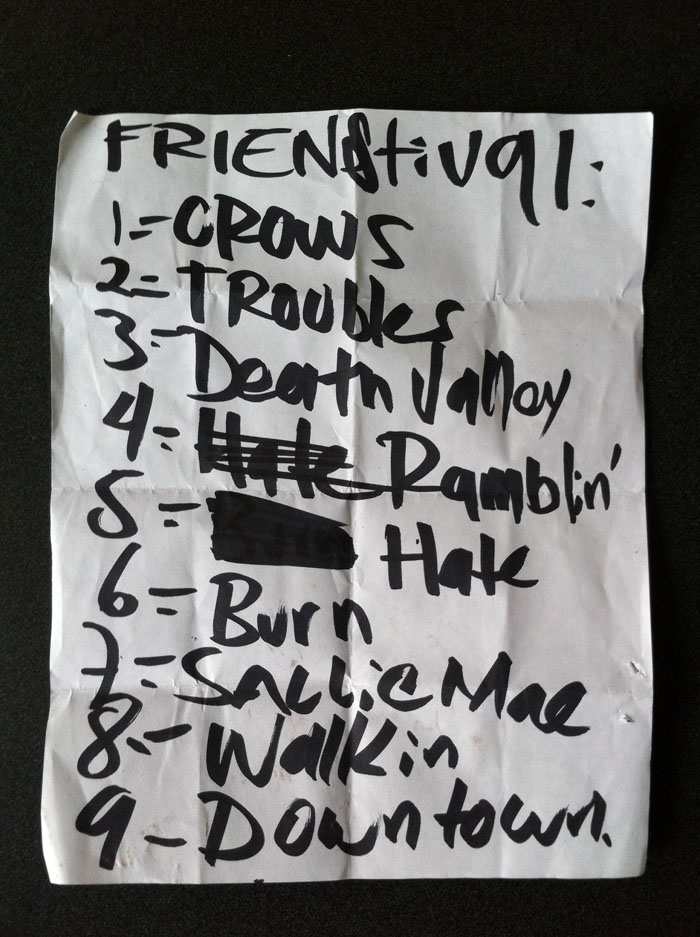 FRIENdtival:
1= CROWS
2= TRoubles
3- Death Valley
4= Hate Ramblin'
5= Burn Hate
6= Burn
7= SALLie Mae
8.- Walkin
9- Downtown.